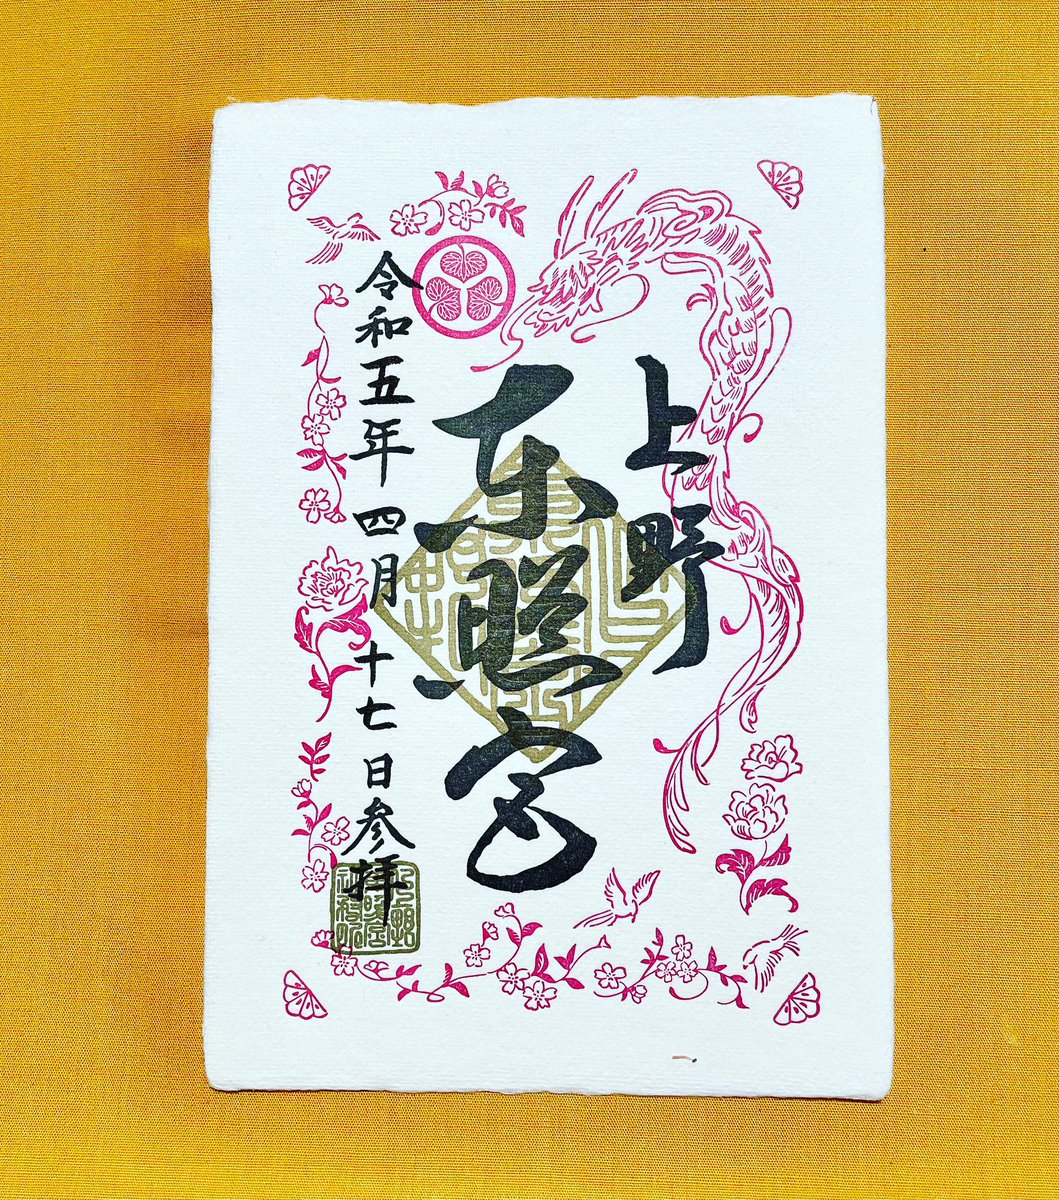 上野
東照宮
令和五年四月十七日参拝